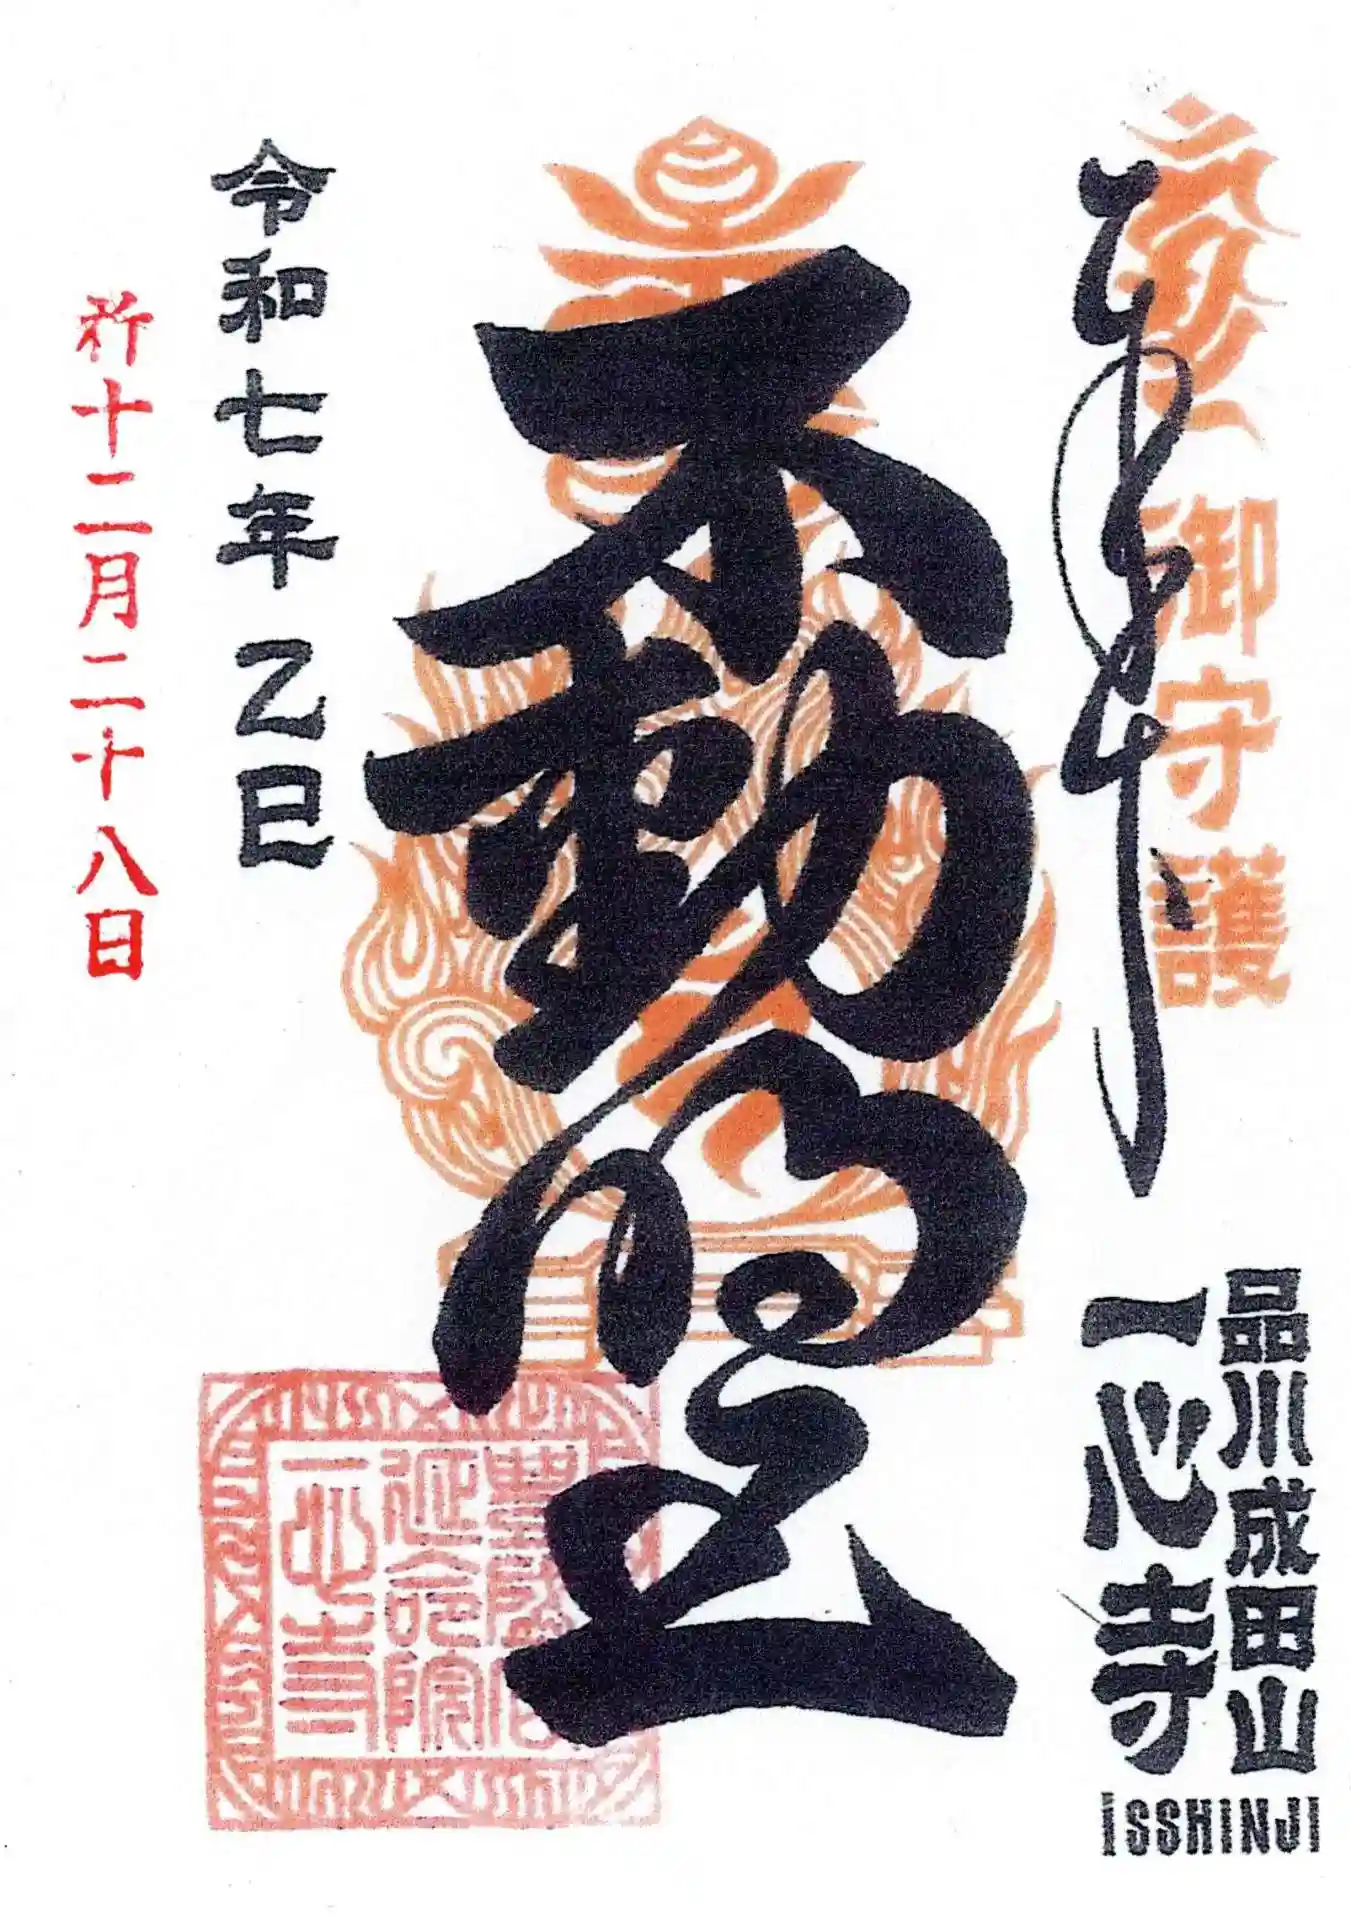 奉拝
御守護
品川成田山
一心寺
ISSHINJI
不動明王
令和七年乙巳
十二月二十八日
豊盛山
延命院
一心寺